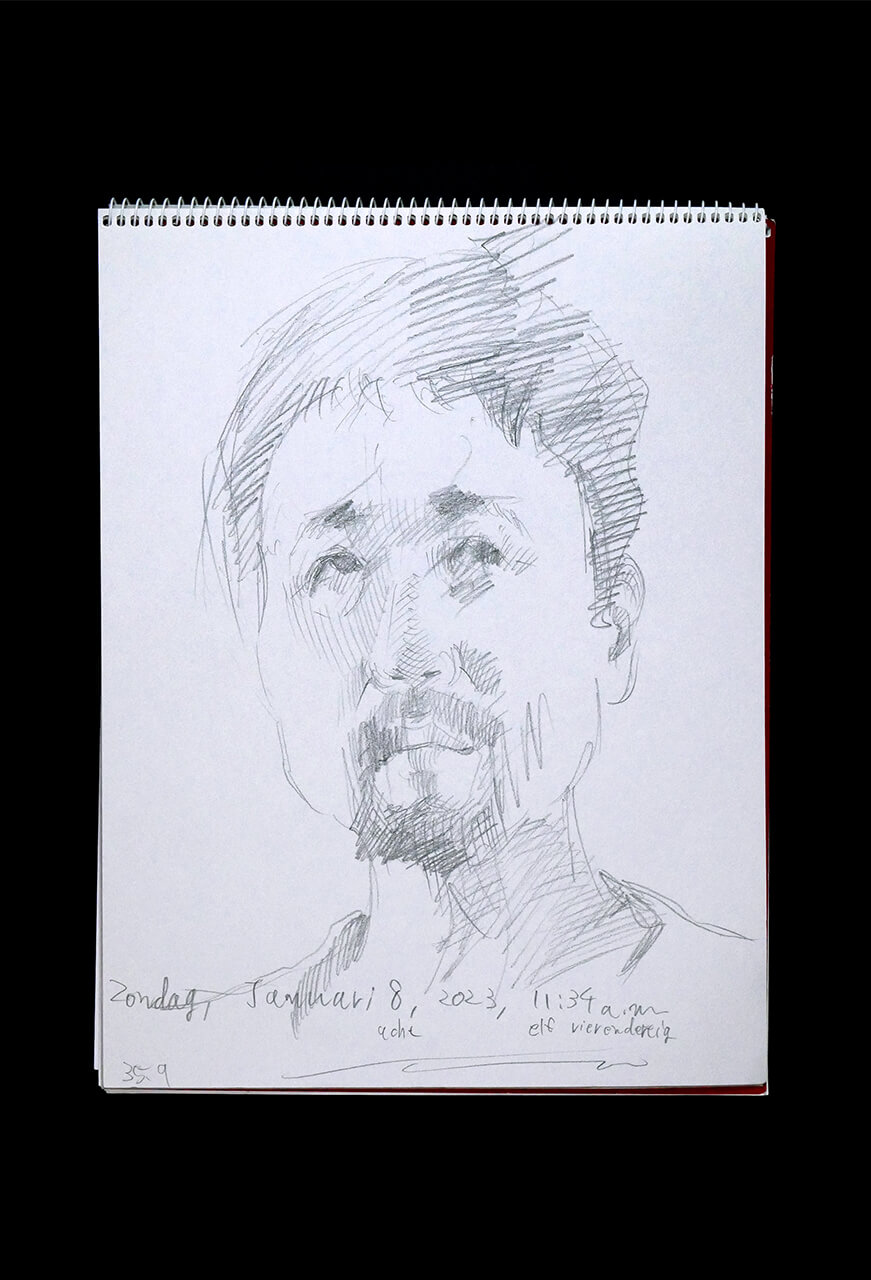 Zondag, Januari 8, 2023, 11:34 a.m
acht elf vierendertig
35.9